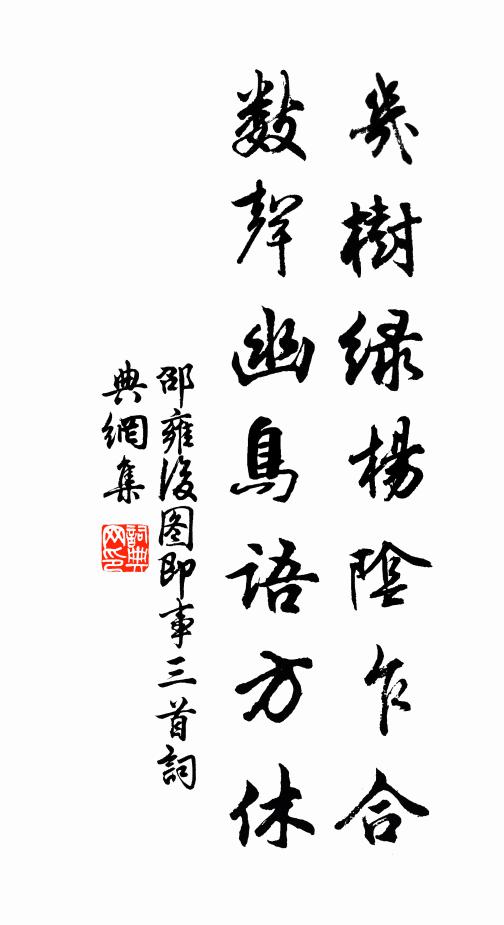 幾樹緑楊陰乍合
數聲幽鳥語方休
邵雍後圖即事三首詞
典網集
詞典
网印